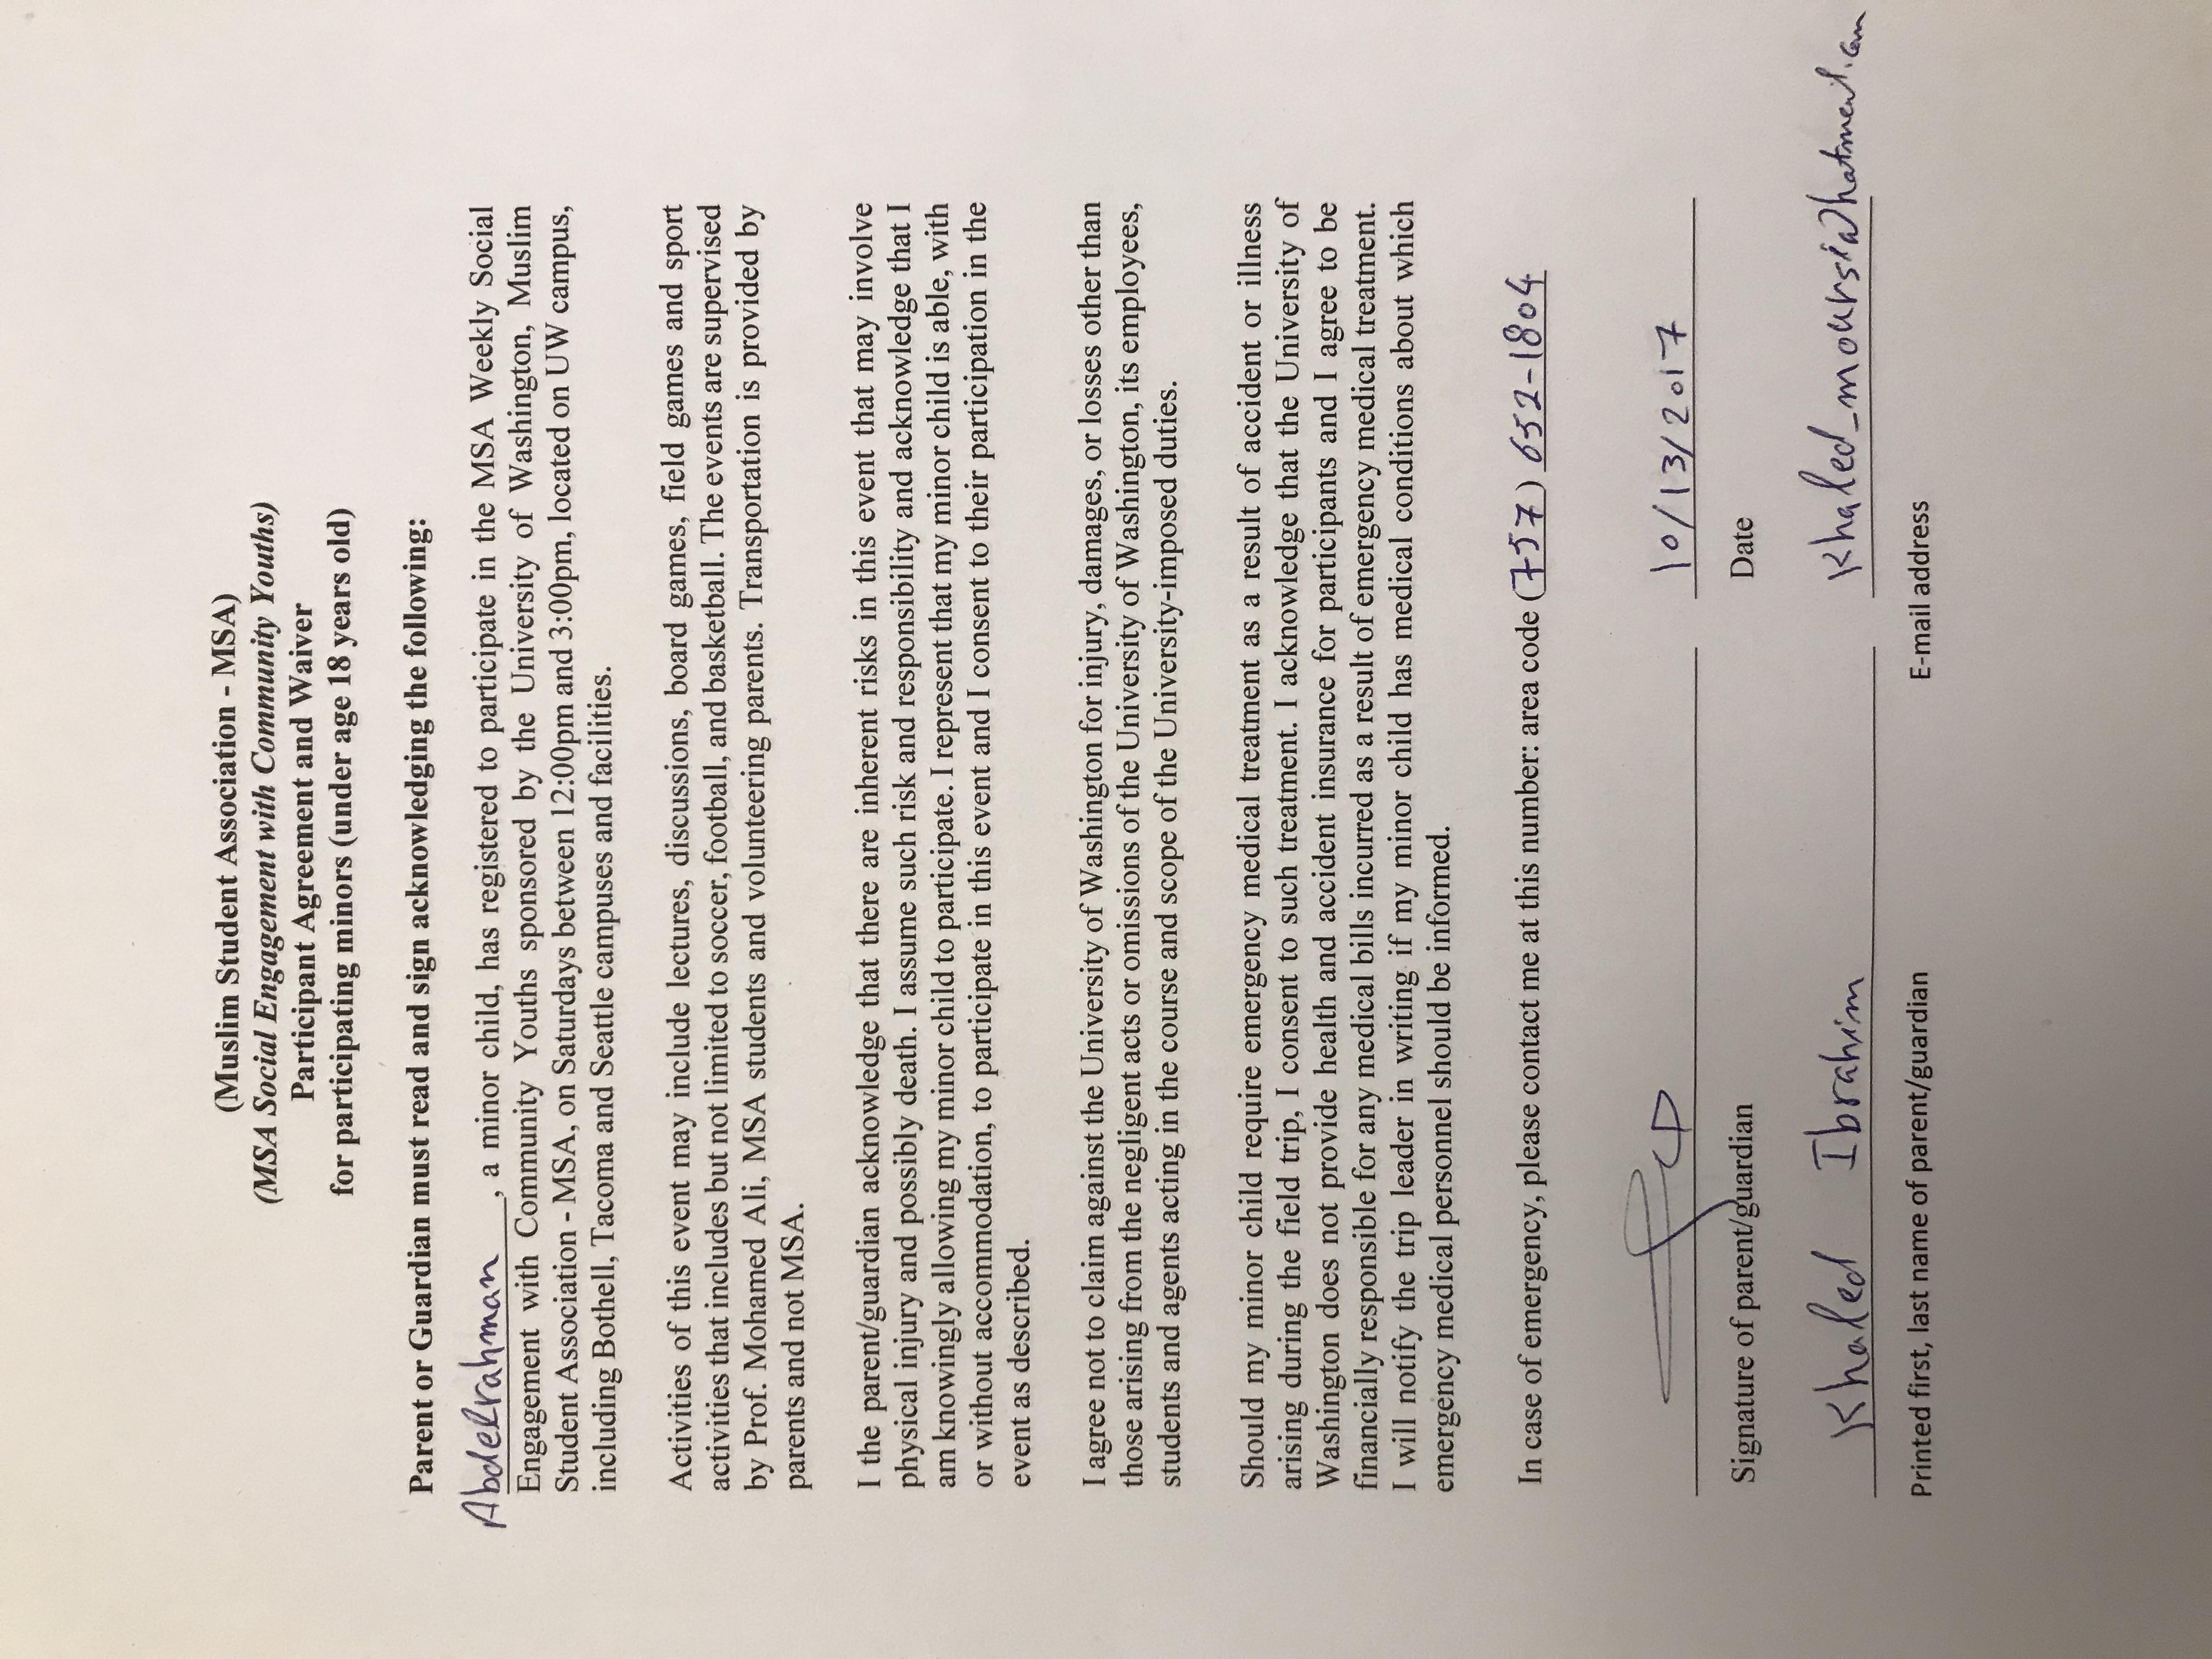 (Muslim Student Association - MSA)
(MSA Social Engagement with Community Youths)
Participant Agreement and Waiver
for participating minors (under age 18 years old)
Parent or Guardian must read and sign acknowledging the following:
Abdelrahman, a minor child, has registered to participate in the MSA Weekly Social
Engagement with Community Youths sponsored by the University of Washington, Muslim
Student Association - MSA, on Saturdays between 12:00pm and 3:00pm, located on UW campus,
including Bothell, Tacoma and Seattle campuses and facilities.
Activities of this event may include lectures, discussions, board games, field games and sport
activities that includes but not limited to soccer, football, and basketball. The events are supervised
by Prof. Mohamed Ali, MSA students and volunteering parents. Transportation is provided by
parents and not MSA.
I the parent/guardian acknowledge that there are inherent risks in this event that may involve
physical injury and possibly death. I assume such risk and responsibility and acknowledge that I
am knowingly allowing my minor child to participate. I represent that my minor child is able, with
or without accommodation, to participate in this event and I consent to their participation in the
event as described.
I agree not to claim against the University of Washington for injury, damages, or losses other than
those arising from the negligent acts or omissions of the University of Washington, its employees,
students and agents acting in the course and scope of the University-imposed duties.
Should my minor child require emergency medical treatment as a result of accident or illness
arising during the field trip, I consent to such treatment. I acknowledge that the University of
Washington does not provide health and accident insurance for participants and I agree to be
financially responsible for any medical bills incurred as a result of emergency medical treatment.
I will notify the trip leader in writing if my minor child has medical conditions about which
emergency medical personnel should be informed.
In case of emergency, please contact me at this number: area code (757) 652-1804
10/13/2017
Signature of parent/guardian Date
Khaled Ibrahim
Printed first, last name of parent/guardian E-mail address